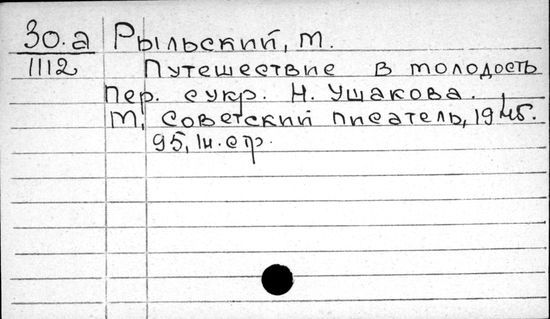 30.а Рыльский, М.
1112 Путешествие в молодость
Пер. с укр. Н. Ушакова.
М, Советский писатель,
95, 1н. стр.